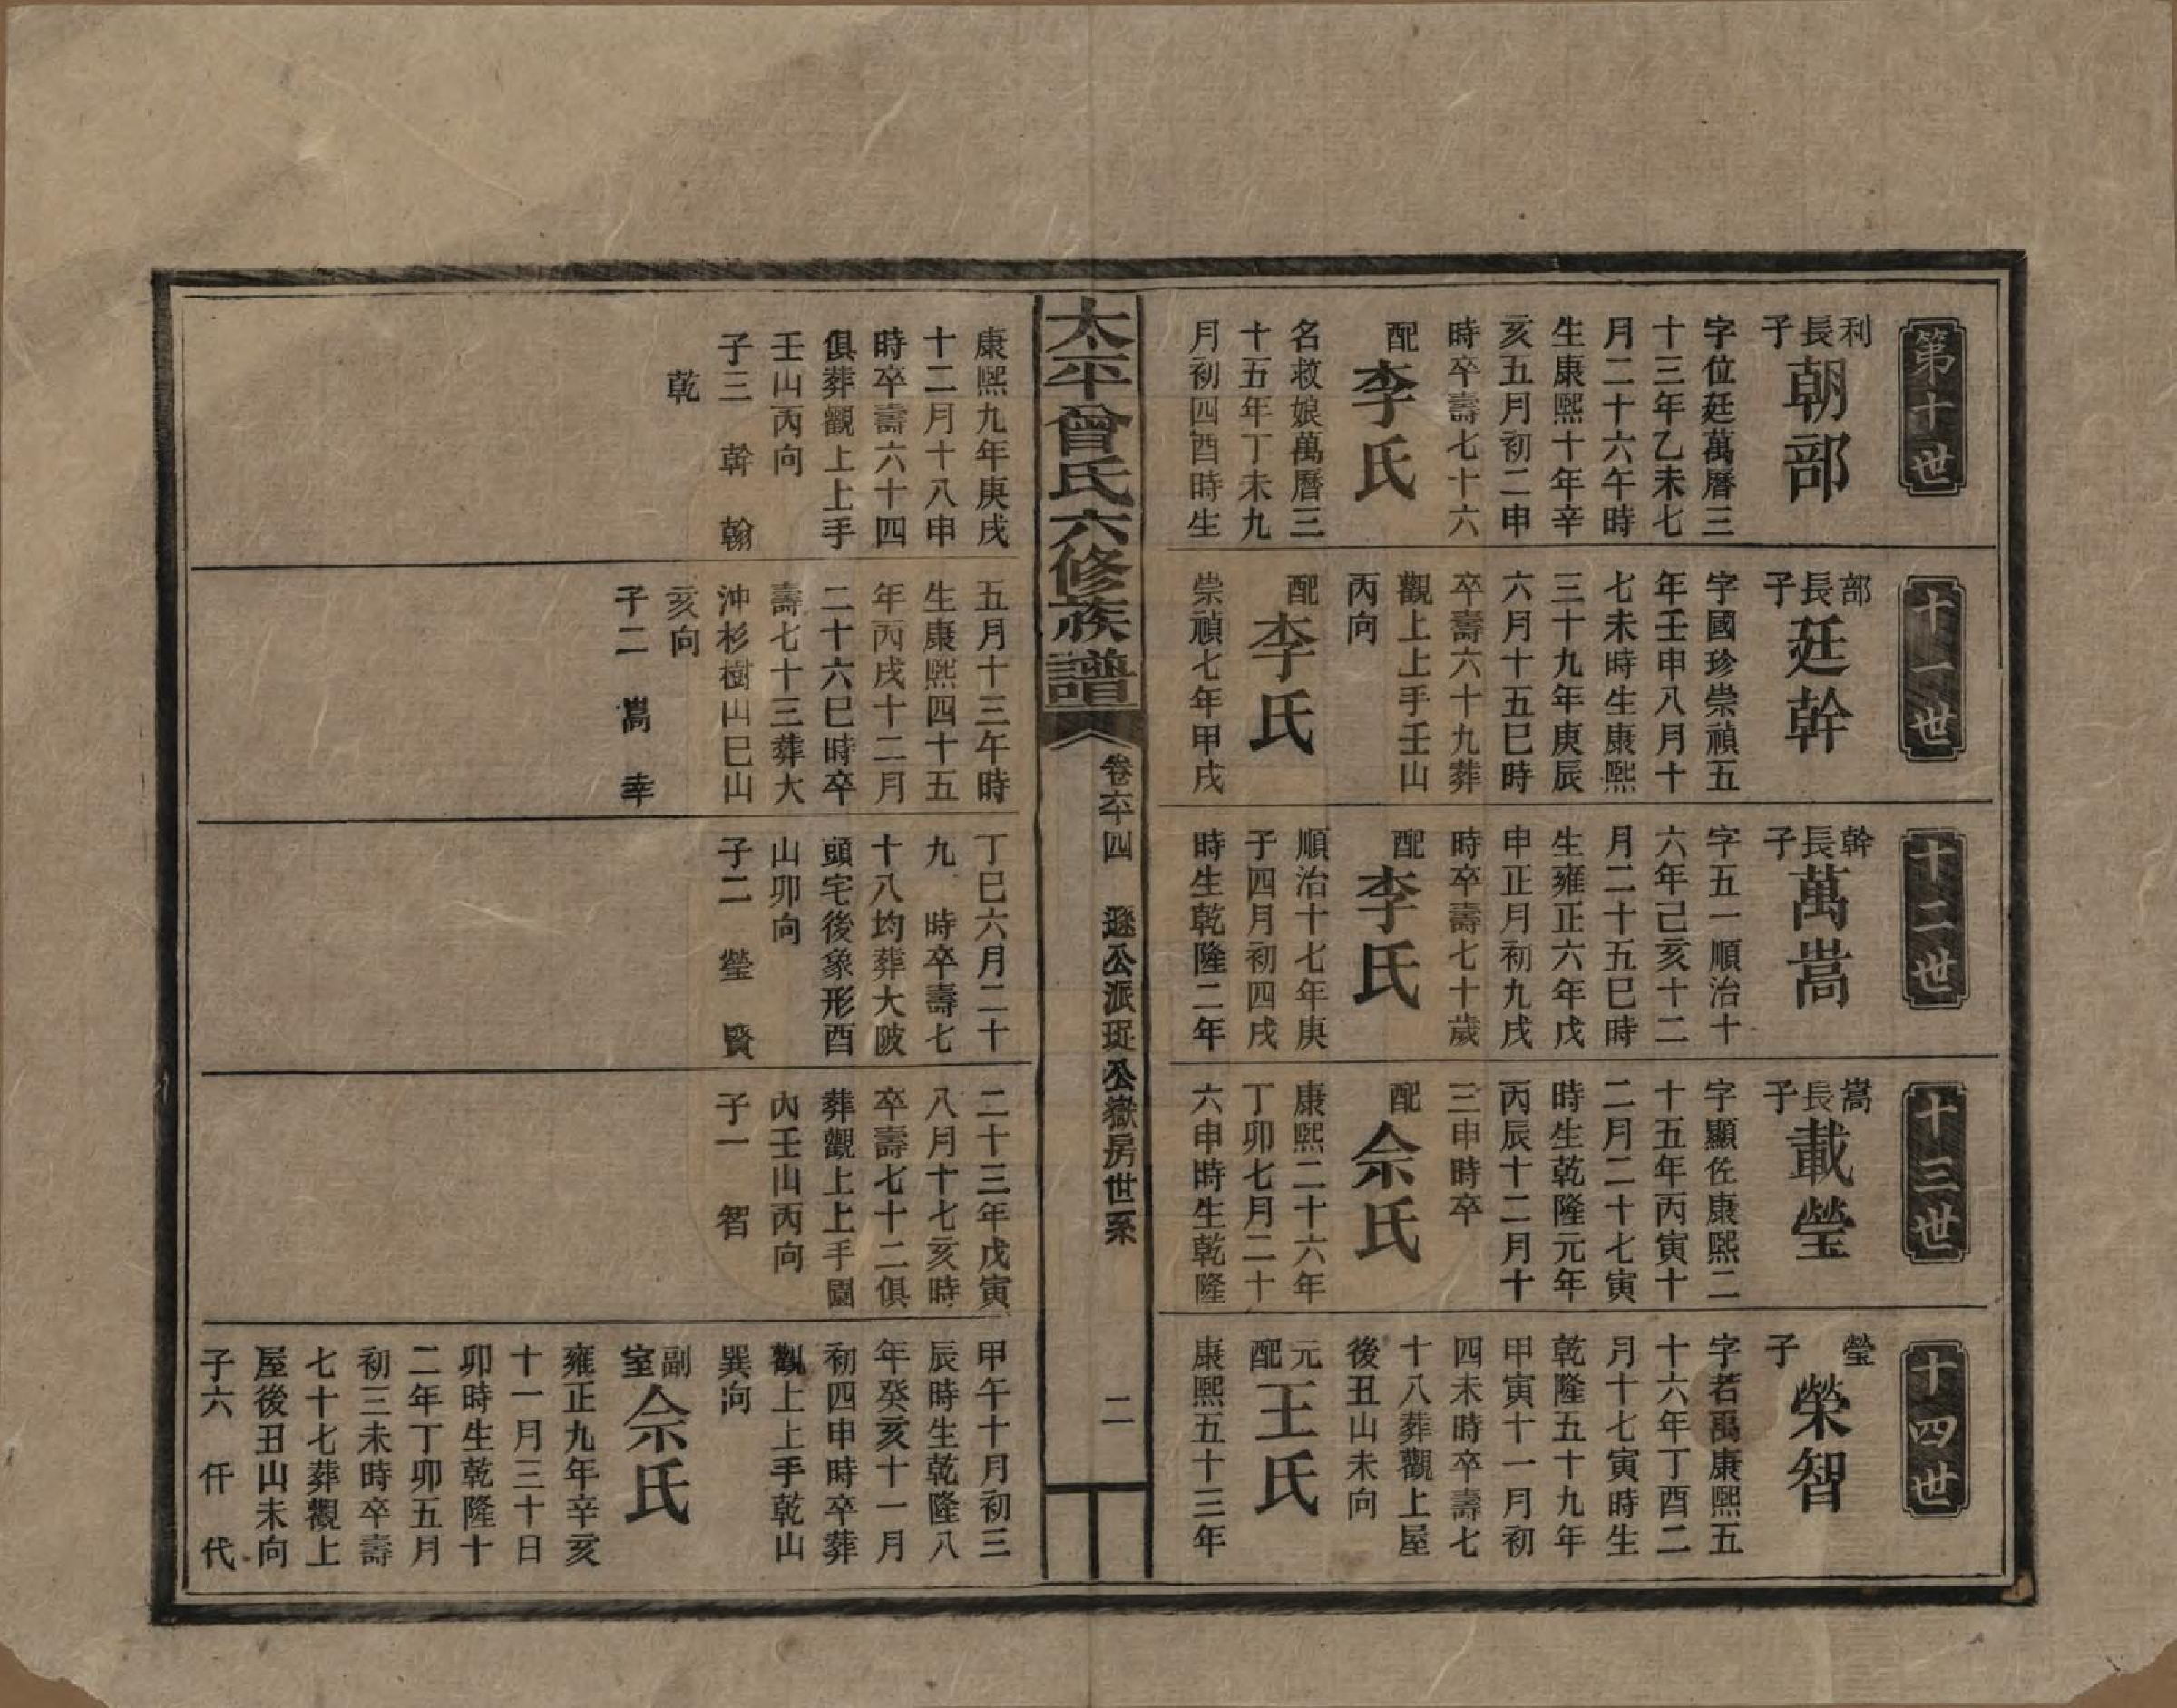 第十世
利長子
朝部
字位廷萬曆三
十三年乙未七
月二十六午時
生康熙十年辛
亥五月初二申
時卒壽七十六
配李氏
名救娘萬曆三
十五年丁未九
月初四酉時生
康熙九年庚戌
十二月十八申
時卒壽六十四
俱葬觀上上手
壬山丙向
子三 幹 翰
乾
十一世
部長子
廷幹
字國珍崇禎五
年壬申八月十
七未時生康熙
三十九年庚辰
六月十五巳時
卒壽六十九葬
觀上上手壬山
丙向
配李氏
崇禎七年甲戌
五月十三午時
生康熙四十五
年丙戌十二月
二十六巳時卒
壽七十三葬大
沖杉樹山巳山
亥向
子二 嵩 幸
十二世
幹長子
萬嵩
字五一順治十
六年己亥十二
月二十五巳時
生雍正六年戊
申正月初九戌
時卒壽七十歲
配李氏
順治十七年庚
子四月初四戌
時生乾隆二年
丁巳六月二十
九 時卒壽七
十八均葬大陂
頭宅後象形酉
山卯向
子二 瑩 賢
十三世
嵩長子
載瑩
字顯佐康熙二
十五年丙寅十
二月二十七寅
時生乾隆元年
丙辰十二月十
三申時卒
配佘氏
康熙二十六年
丁卯七月二十
六申時生乾隆
二十三年戊寅
八月十七亥時
卒壽七十二俱
葬觀上上手園
內壬山丙向
子一 智
十四世
瑩子
榮智
字若禹康熙五
十六年丁酉二
月十七寅時生
乾隆五十九年
甲寅十一月初
四未時卒壽七
十八葬觀上屋
後丑山未向
元配王氏
康熙五十三年
甲午十月初三
辰時生乾隆八
年癸亥十一月
初四申時卒葬
觀上上手乾山
巽向
副室佘氏
雍正九年辛亥
十一月三十日
卯時生乾隆十
二年丁卯五月
初三未時卒壽
七十七葬觀上
屋後丑山未向
子六 仟 代
太平曾氏六修族譜
卷六十四 遜公派珽公嶽房世系 二